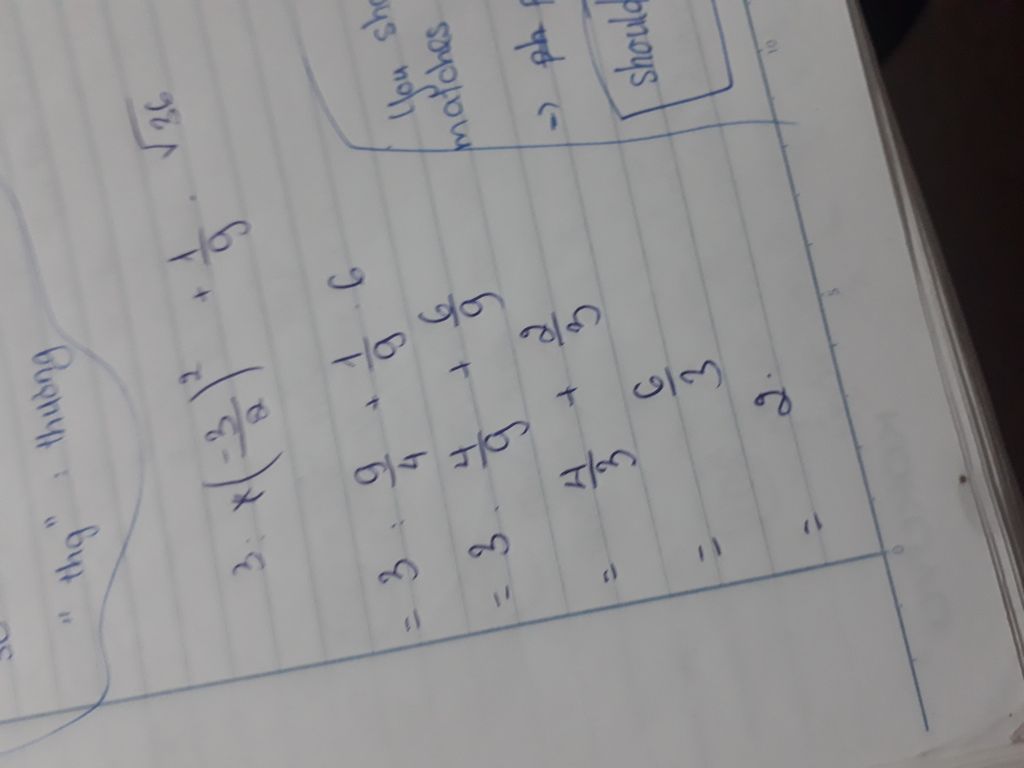 "thg" : thường
3 : (-3/2)² + 1/9 . √36
= 3 : 9/4 + 1/9 . 6
= 3 . 4/9 + 6/9
= 4/3 + 2/3
= 6/3
= 2.
You
matches
=)
should
0
5
10